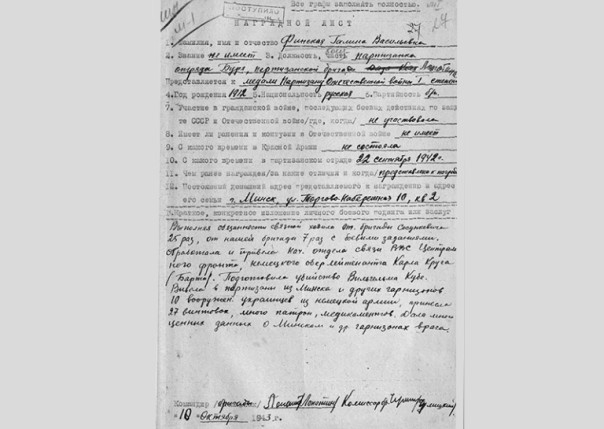 Все графы заполнять полностью.
НАГРАДНОЙ ЛИСТ
1. Фамилия, имя и отчество Финская Галина Васильевна
2. Звание не имеет 3. Должность, партизанка
отряда Буря, партизанской бригады
Представляется к медали Партизану Отечественной войны 1 степени
4. Год рождения 1912 5. Национальность русская 6. Партийность б/п.
7. Участие в гражданской войне, последующих боевых действиях по защите
СССР и Отечественной войне /где, когда/ не участвовала
8. Имеет ли ранения и контузии в Отечественной войне не имеет
9. С какого времени в Красной Армии не состояла
10. С какого времени в партизанском отряде 22 сентября 1942 г.
11. Чем ранее награжден /за какие отличия и когда/ представлена к
12. Постоянный домашний адрес представляемого к награждению и адрес
его семьи г. Минск, ул. Торгово-Набережная 10, кв 2
Краткое, конкретное изложение личного боевого подвига или заслуг
Выполняя обязанности связной ходила от бригады
25 раз, от нашей бригады 7 раз с боевыми заданиями.
Обработала и привела нач. отдела связи ВВС Централь
ного фронта, немецкого обер-лейтенанта Карла Круга
/Барта/. Подготовила убийство Вильгельма Кубе.
Вывела в партизаны из Минска и других гарнизонов
10 вооружен. украинцев из немецкой армии, принесла
27 винтовок, много патрон, медикаментов. Дала много
ценных данных о Минском и др. гарнизонах врага.
Командир /бригады/ Комиссар
"10" Октября 1943 г.